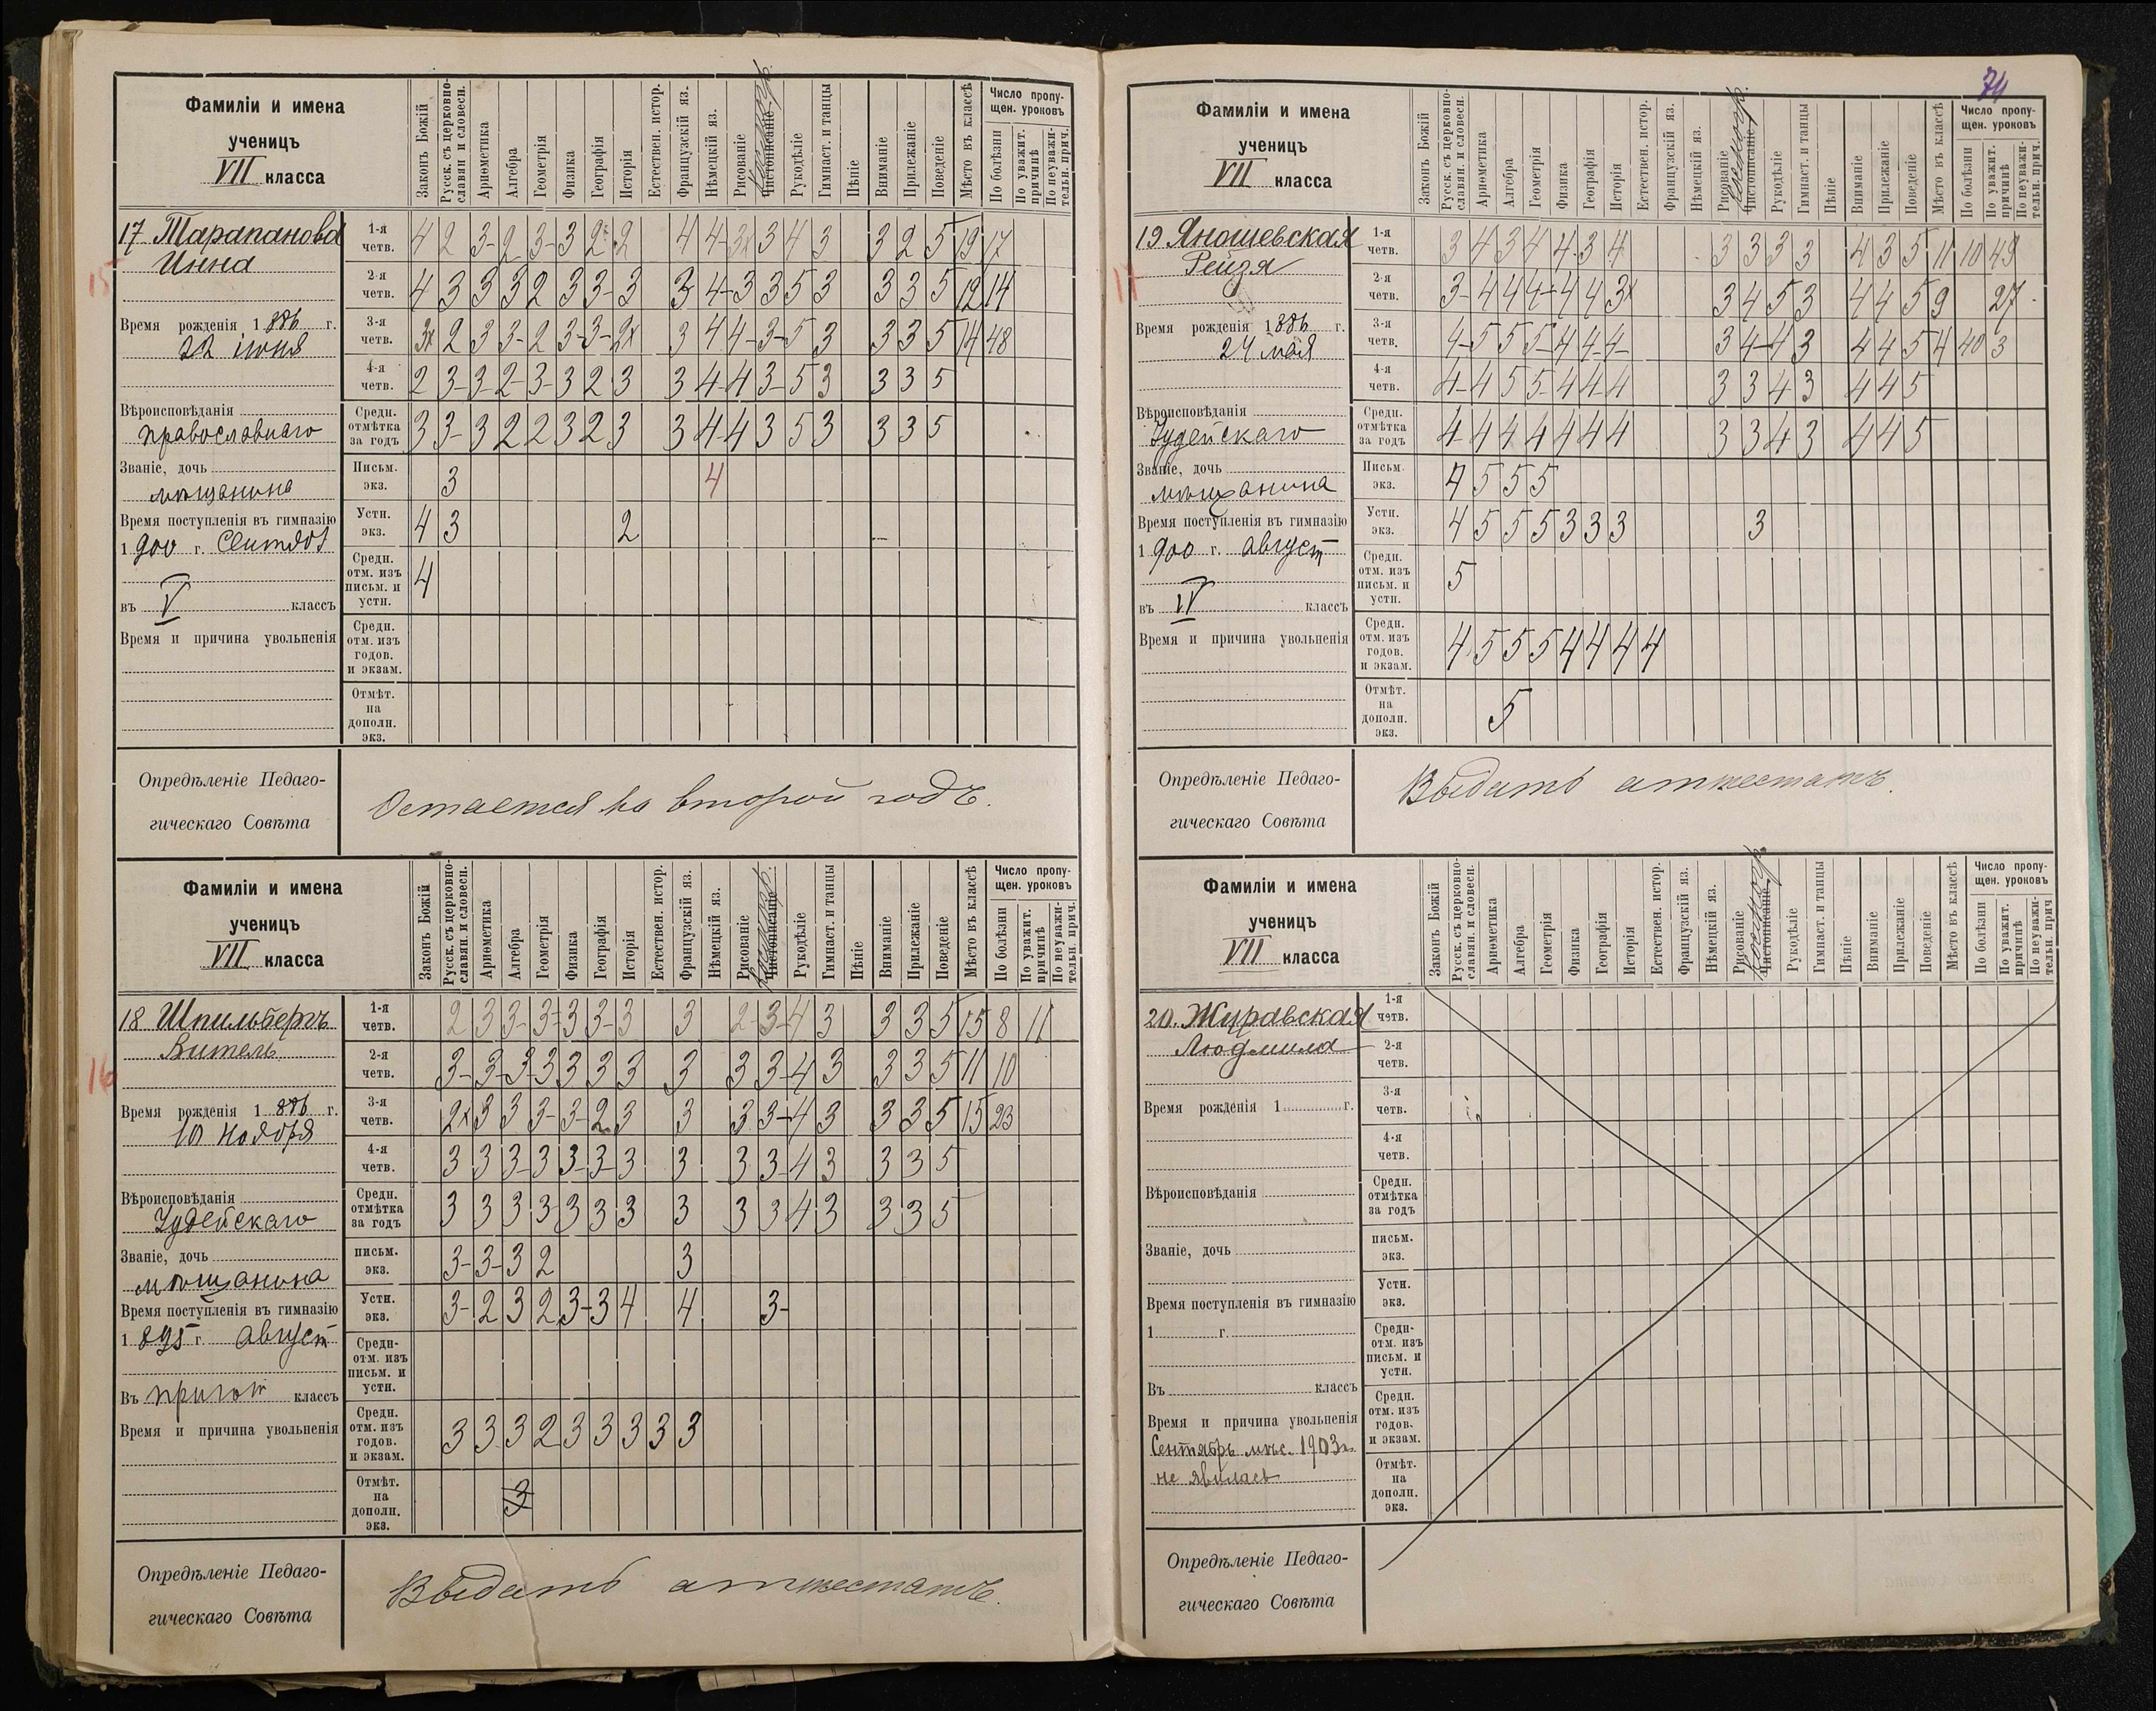 74
Фамиліи и имена
ученицъ
VII класса
Законъ Божій
Русск. съ церковно-
славян. и словесн.
Ариѳметика
Алгебра
Геометрія
Физика
Географія
Исторія
Естествен. истор.
Французскій яз.
Нѣмецкій яз.
Рисованіе
Чистописаніе
Рукодѣліе
Гимнаст. и танцы
Пѣніе
Вниманіе
Прилежаніе
Поведеніе
Мѣсто въ классѣ
Число пропу-
щен. уроковъ
По болѣзни
По уважит.
причинѣ
По неуважи-
тельн. прич.
17 Тарапанова
Инна
15
Время рожденія 1886 г.
22 июня
Вѣроисповѣданія
православнаго
Званіе, дочь
мѣщанина
Время поступленія въ гимназію
1900 г.
въ V классъ
Время и причина увольненія
1-я четв. 4 2 3- 2 3- 3 2 2 4 4- 3х 3 4 3 3 2 5 19 17
2-я четв. 4 3 3 3 2 3 3- 3 3 4- 3 3 5 3 3 3 5 12 14
3-я четв. 3х 2 3 3- 2 3- 3- 2х 3 4 4- 3- 5 3 3 3 5 14 48
4-я четв. 2 3- 3- 2- 3- 3 2 3 3 4- 4 3- 5 3 3 3 5
Средн. отмѣтка за годъ 3 3- 3 2 2 3 2 3 3 4 4 3 5 3 3 3 5
Письм. экз. 3 4
Устн. экз. 4 3 2
Средн. отм. изъ письм. и устн. 4
Средн. отм. изъ годов. и экзам.
Отмѣт. на дополн. экз.
Опредѣленіе Педаго-
гическаго Совѣта
Остается на второй годъ.
Фамиліи и имена
ученицъ
VII класса
Законъ Божій
Русск. съ церковно-
славян. и словесн.
Ариѳметика
Алгебра
Геометрія
Физика
Географія
Исторія
Естествен. истор.
Французскій яз.
Нѣмецкій яз.
Рисованіе
Чистописаніе
Рукодѣліе
Гимнаст. и танцы
Пѣніе
Вниманіе
Прилежаніе
Поведеніе
Мѣсто въ классѣ
Число пропу-
щен. уроковъ
По болѣзни
По уважит.
причинѣ
По неуважи-
тельн. прич.
18 Шпильбергъ
Витель
16
Время рожденія 1886 г.
10 ноября
Вѣроисповѣданія
Іудейскаго
Званіе, дочь
мѣщанина
Время поступленія въ гимназію
1895 г. август
Въ пригот классъ
Время и причина увольненія
1-я четв. 2 3 3- 3- 3 3- 3 3 2- 3- 4 3 3 3 5 15 8 11
2-я четв. 3- 3- 3- 3 3 3 3 3 3 3- 4 3 3 3 5 11 10
3-я четв. 2х 3 3 3- 3- 2 3 3 3 3- 4 3 3 3 5 15 23
4-я четв. 3 3 3- 3 3- 3- 3 3 3 3- 4 3 3 3 5
Средн. отмѣтка за годъ 3 3 3 3 3 3 3 3 3 3 4 3 3 3 5
письм. экз. 3- 3- 3 2 3
Устн. экз. 3- 2 3 2 3- 3 4 4 3-
Средн- отм. изъ письм. и устн.
Средн. отм. изъ годов. и экзам. 3 3 3 2 3 3 3 3 3
Отмѣт. на дополн. экз. 3
Опредѣленіе Педаго-
гическаго Совѣта
Выдать аттестатъ.
Фамиліи и имена
ученицъ
VII класса
Законъ Божій
Русск. съ церковно-
славян. и словесн.
Ариѳметика
Алгебра
Геометрія
Физика
Географія
Исторія
Естествен. истор.
Французскій яз.
Нѣмецкій яз.
Рисованіе
Чистописаніе
Рукодѣліе
Гимнаст. и танцы
Пѣніе
Вниманіе
Прилежаніе
Поведеніе
Мѣсто въ классѣ
Число пропу-
щен. уроковъ
По болѣзни
По уважит.
причинѣ
По неуважи-
тельн. прич.
19 Яношевская
Рейзя
17
Время рожденія 1886 г.
24 мая
Вѣроисповѣданія
Іудейскаго
Званіе, дочь
мѣщанина
Время поступленія въ гимназію
1900 г. август
въ IV классъ
Время и причина увольненія
1-я четв. 3 4 3 4 4 3 4 3 3 3 3 4 3 5 11 10 49
2-я четв. 3- 4 4 4- 4 4 3х 3 4 5 3 4 4 5 9 27
3-я четв. 4- 5 5 5- 4 4- 4- 3 4- 4 3 4 4 5 4 40 3
4-я четв. 4- 4 5 5- 4 4 4 3 3 4 3 4 4 5
Средн. отмѣтка за годъ 4- 4 4 4 4 4 4 3 3 4 3 4 4 5
Письм. экз. 4 5 5 5
Устн. экз. 4 5 5 5 3 3 3 3
Средн. отм. изъ письм. и устн. 5
Средн. отм. изъ годов. и экзам. 4 5 5 5 4 4 4 4
Отмѣт. на дополн. экз. 5
Опредѣленіе Педаго-
гическаго Совѣта
Выдать аттестатъ.
Фамиліи и имена
ученицъ
VII класса
Законъ Божій
Русск. съ церковно-
славян. и словесн.
Ариѳметика
Алгебра
Геометрія
Физика
Географія
Исторія
Естествен. истор.
Французскій яз.
Нѣмецкій яз.
Рисованіе
Чистописаніе
Рукодѣліе
Гимнаст. и танцы
Пѣніе
Вниманіе
Прилежаніе
Поведеніе
Мѣсто въ классѣ
Число пропу-
щен. уроковъ
По болѣзни
По уважит.
причинѣ
По неуважи-
тельн. прич
20. Журавская
Людмила
Время рожденія 1 г.
Вѣроисповѣданія
Званіе, дочь
Время поступленія въ гимназію
1 г.
Въ классъ
Время и причина увольненія
Сентябрь мѣс. 1903 г.
не явилась
1-я четв.
2-я четв.
3-я четв.
4-я четв.
Средн. отмѣтка за годъ
письм. экз.
Устн. экз.
Средн- отм. изъ письм. и устн.
Средн. отм. изъ годов. и экзам.
Отмѣт. на дополн. экз.
Опредѣленіе Педаго-
гическаго Совѣта